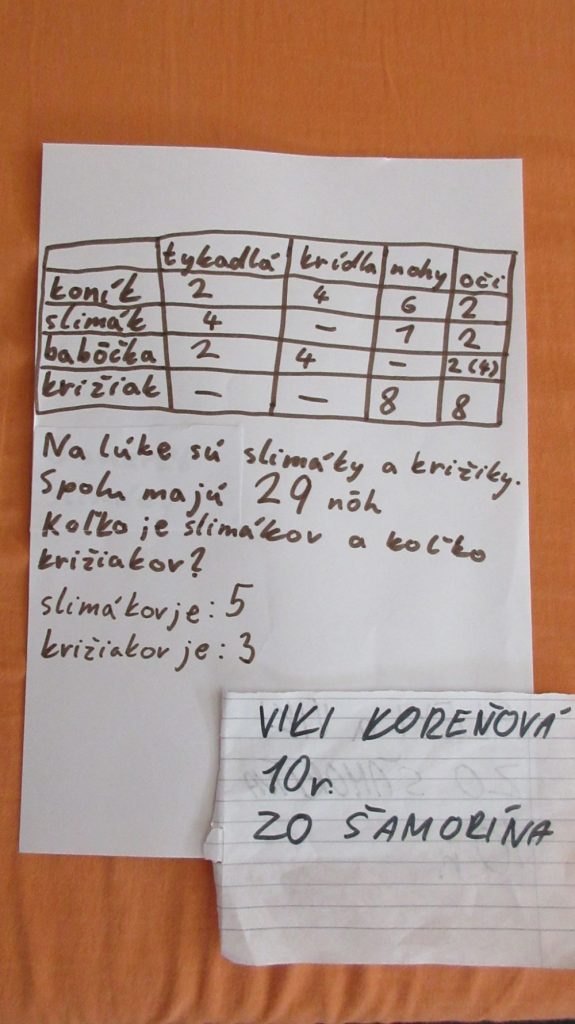 tykadlá krídla nohy oči
koník 2 4 6 2
slimák 4 – 1 2
babôčka 2 4 – 2(4)
križiak – – 8 8
Na lúke sú slimáky a križiky.
Spolu majú 29 nôh
Koľko je slimákov a koľko
križiakov?
slimákov je: 5
križiakov je: 3
VIKI KOREŇOVÁ
10r.
ZO ŠAMORÍNA